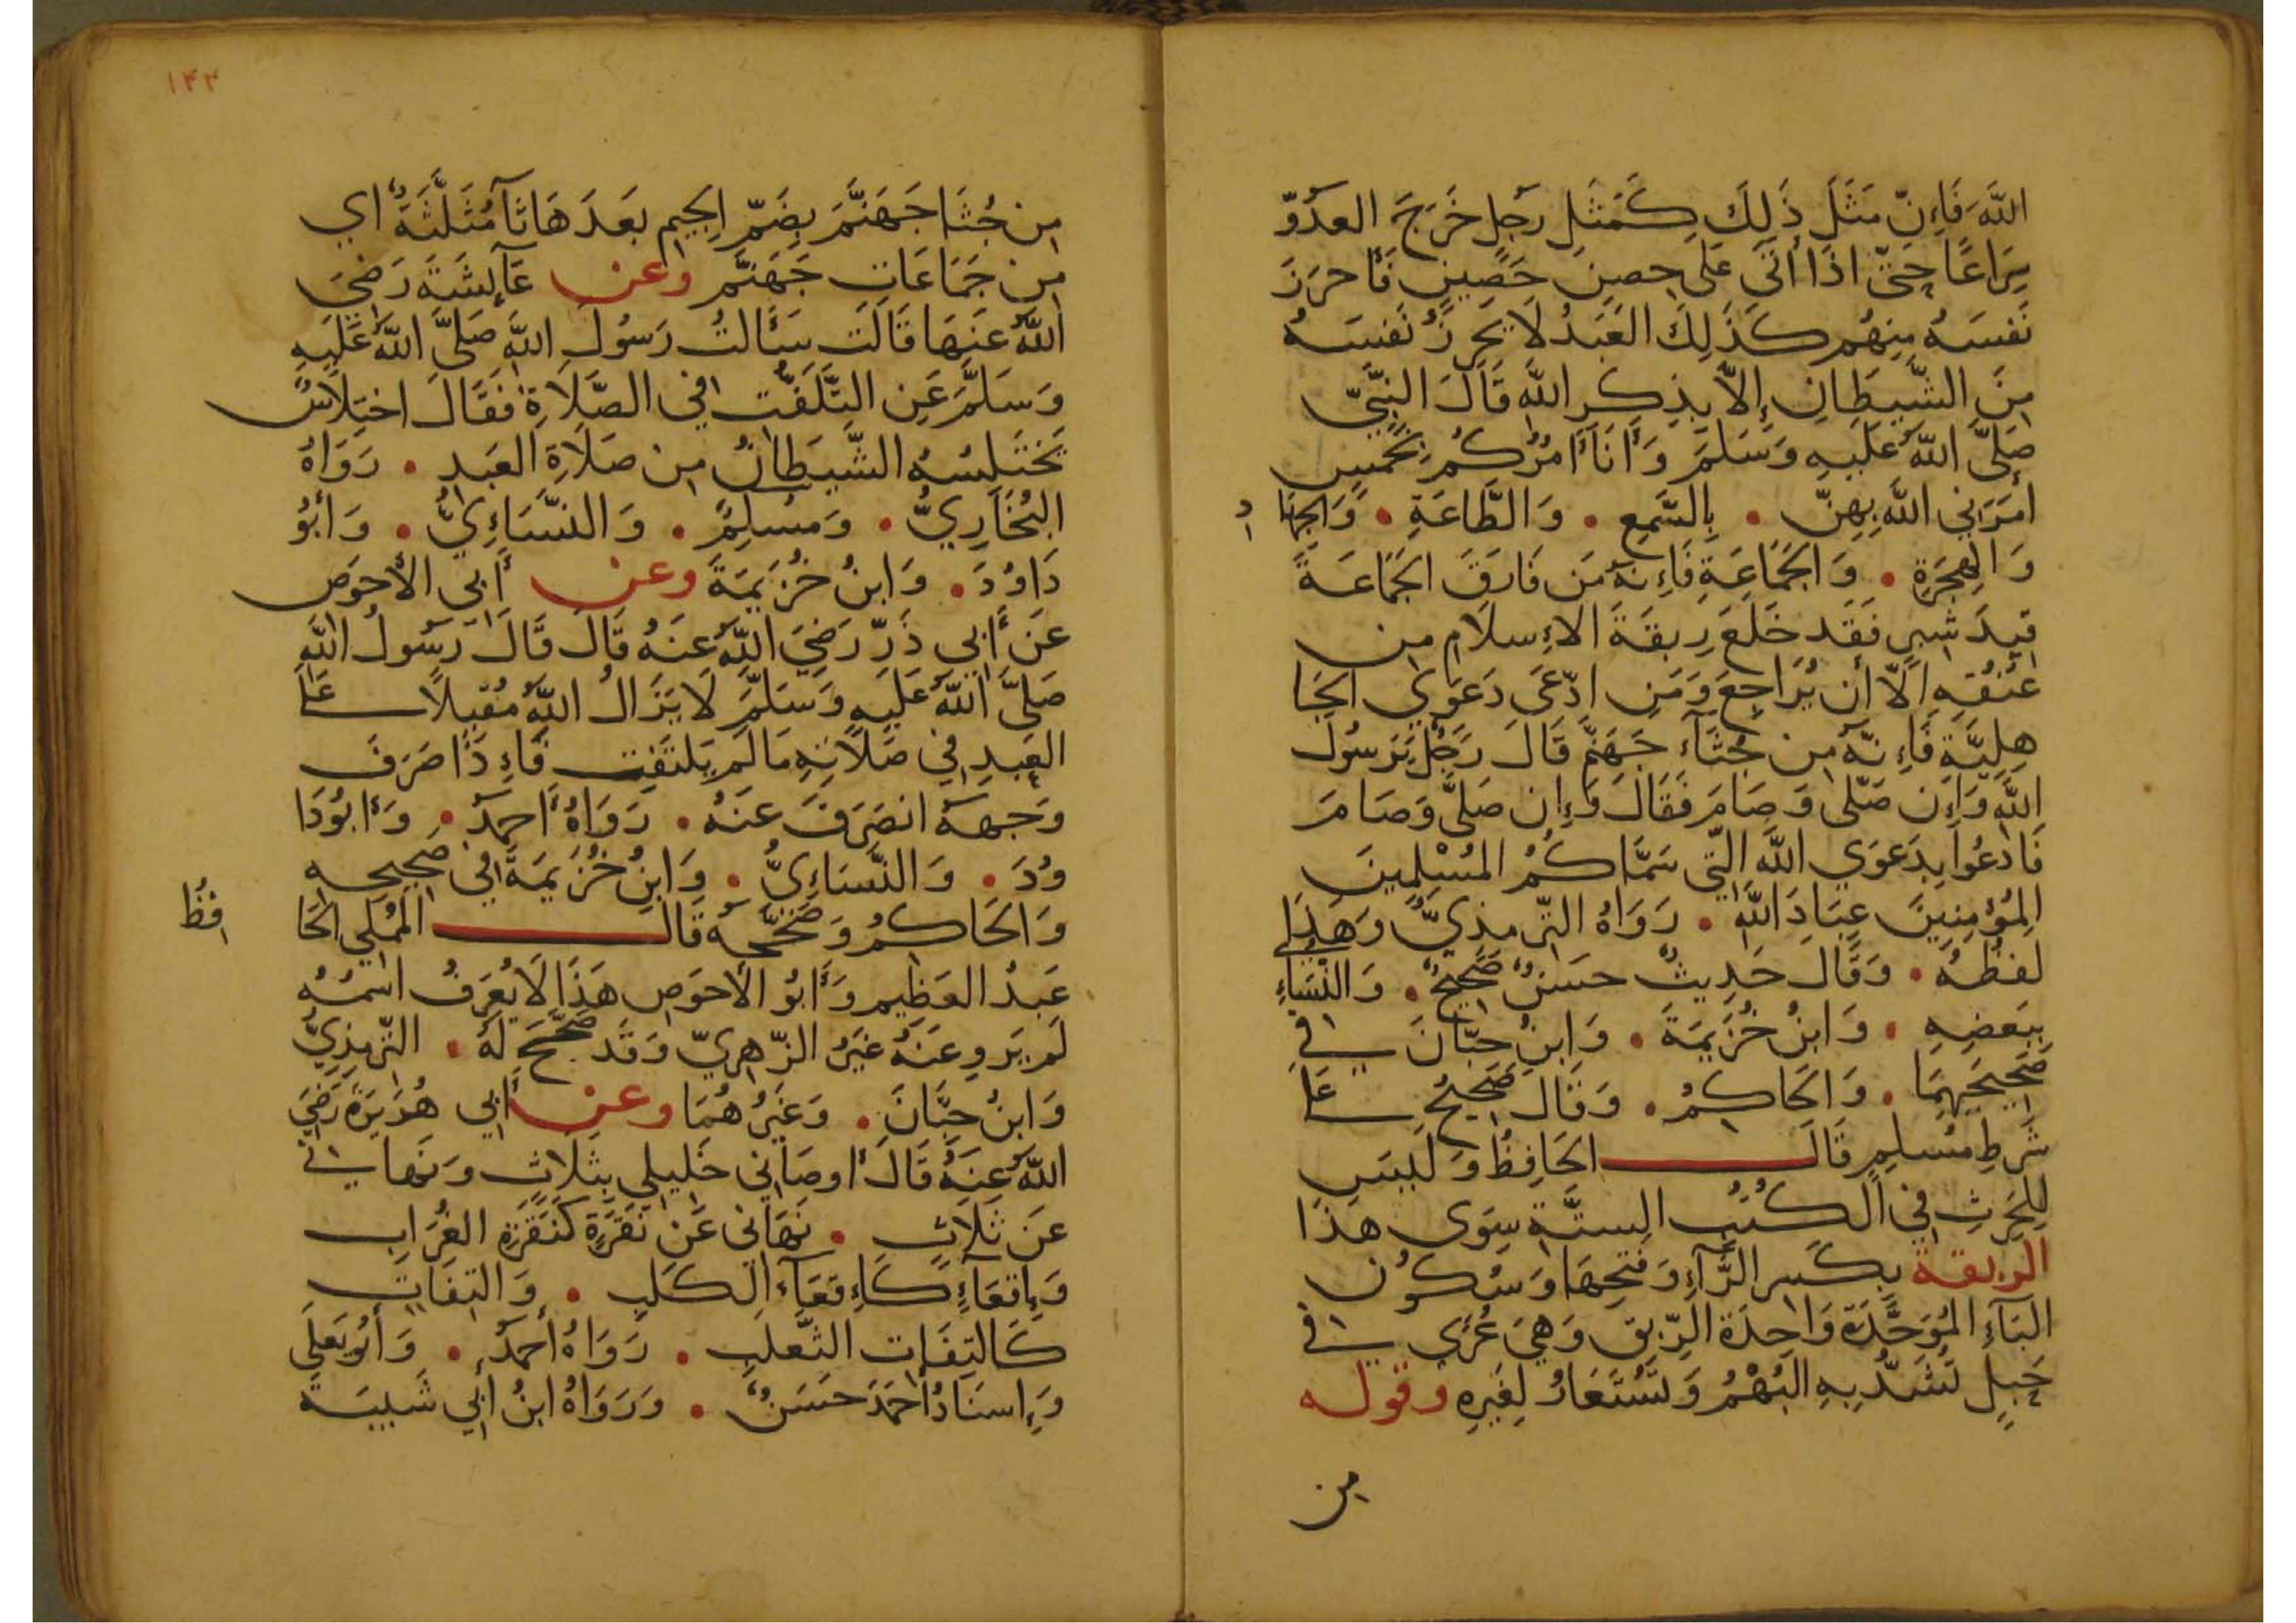 اللَّهَ فَإِنَّ مَثَلَ ذَلِكَ كَمَثَلِ رَجُلٍ خَرَجَ العَدُوّ
سِرَاعًا حَتَّى اذَا أَتَى عَلَى حِصنٍ حَصِينٍ فَأَحرَزَ
نَفسَهُ مِنهُم كَذَلِكَ العَبدُ لَا يَحرِزُ نَفسَهُ
مِنَ الشَّيطَانِ إِلاَّ بِذِكرِ اللَّهِ قَالَ النَّبِيّ
صَلَّى اللَّهُ عَلَيهِ وَسَلَّمَ وَأَنَا آمُرُكُم بِخَمسٍ
امَرَنِي اللَّهُ بِهِنّ . بِالسَّمعِ . وَالطَّاعَةِ . وَالجِهَا د
وَالهِجرَةِ . وَالجَمَاعَةِ فَإِنَّهُ مَن فَارَقَ الجَمَاعَةَ
قِيدَ شِبرٍ فَقَد خَلَعَ رِبقَةَ الإِسلَامِ مِن
عُنُقِهِ الاَّ أَن يُرَاجِعَ وَمَنِ ادَّعَى دَعوَى الجَا
هِلِيَّةِ فَإِنَّهُ مِن جُثَآءِ جَهَنَّمَ قَالَ رَجُلٌ يَرَسُولَ
اللَّهِ وَإِن صَلَّى وَصَامَ فَقَالَ وَإِن صَلَّى وَصَامَ
فَادعُوا بِدَعوَى اللَّهِ الَّتِي سَمَّاكُمُ المُسْلِمِينَ
المُؤمِنِينَ عِبَادَ اللَّهِ . رَوَاهُ التِّرمِذِيُّ وَهَذَا
لَفظُهُ . وَقَالَ حَدِيثٌ حَسَنٌ صَحِيحٌ . وَالنَّسَاءِ
بِبَعضِهِ . وَابنُ خُزَيمَةَ . وَابنُ حِبَّانَ في
صَحِيحَيهِمَا . وَالحَاكِمُ . وَقَالَ صَحِيحٌ عَلَى
شَرطِ مُسلِمٍ قَالَ الحَافِظُ وَلَيسَ
لِلحَرِثِ فِي الكُتُبِ السِتَّةِ سِوَى هَذَا
الربقة بِكَسرِ الرَّآءِ وَفَتحِهَا وَسُكُونِ
البَآءِ المُوَحَّدَةِ وَاحِدَةُ الرِّبقِ وَهِيَ عُرًى في
حَبلٍ تُشَدُّ بِهِ البُهْمُ وَتُستَعَارُ لِغَيرِهِ وقوله
من
١٤٣
مِن جُثَا جَهَنَّمَ بِضَمِّ الجِيمِ بَعدَهَا ثَآ مُثَلَّثَةٌ اي
مِن جَمَاعَاتِ جَهَنَّم وعن عَآئِشَةَ رَضِيَ
اللَّهُ عَنهَا قَالَت سَأَلتُ رَسُولَ اللَّهِ صَلَّى اللَّهُ عَلَيهِ
وَسَلَّمَ عَنِ التَّلَفُّت فِي الصَّلَاةِ فَقَالَ اختِلَاسٌ
يَختَلِسُهُ الشَّيطَانُ مِن صَلَاةِ العَبدِ . رَوَاهُ
البُخَارِيُّ . وَمُسلِمٌ . وَالنَّسَاءِيُّ . وَأَبُو
دَاوُدَ . وَابنُ خُزَيمَةَ وعن أَبِي الأَحوَصِ
عَن أَبِي ذَرٍّ رَضِيَ اللَّهُ عَنهُ قَالَ قَالَ رَسُولُ اللَّهِ
صَلَّى اللَّهُ عَلَيهِ وَسَلَّمَ لَا يَزَالُ اللَّهُ مُقبِلًا عَلَى
العَبدِ فِي صَلَاتِهِ مَا لَم يَلتَفِت فَإِذَا صَرَفَ
وَجهَهُ انصَرَفَ عَنهُ . رَوَاهُ أَحمَدُ . وَأَبُودَا
وُدَ . وَالنَّسَاءِيُّ . وَابنُ خُزَيمَةَ فِي صَحِيحِهِ
وَالحَاكِمُ وَصَحَّحَهُ قَالَ المُملِي الحَا فِظُ
عَبدُ العَظِيمِ وَأَبُو الأَحوَصِ هَذَا لَا يُعرَفُ اسمُهُ
لَم يَروِ عَنهُ غَيرُ الزُّهرِيِّ وَقَد صَحَّحَ لَهُ . التِّرمِذِيُّ
وَابنُ حِبَّانَ . وَغَيرُهُمَا وعن أَبِي هُرَيرَةَ رَضِيَ
اللَّهُ عَنهُ قَالَ أَوصَانِي خَلِيلِي بِثَلَاثٍ وَنَهَانِي
عَن ثَلَاثٍ . نَهَانِي عَن نَقرَةٍ كَنَقرَةِ الغُرَابِ
وَإِقعَآءٍ كَإِقعَآءِ الكَلبِ . وَالتِفَاتٍ
كَالتِفَاتِ الثَّعلَبِ . رَوَاهُ أَحمَدُ . وَأَبُو يَعلَى
وَإِسنَادُ أَحمَدَ حَسَنٌ . وَرَوَاهُ ابنُ أَبِي شَيبَةَ